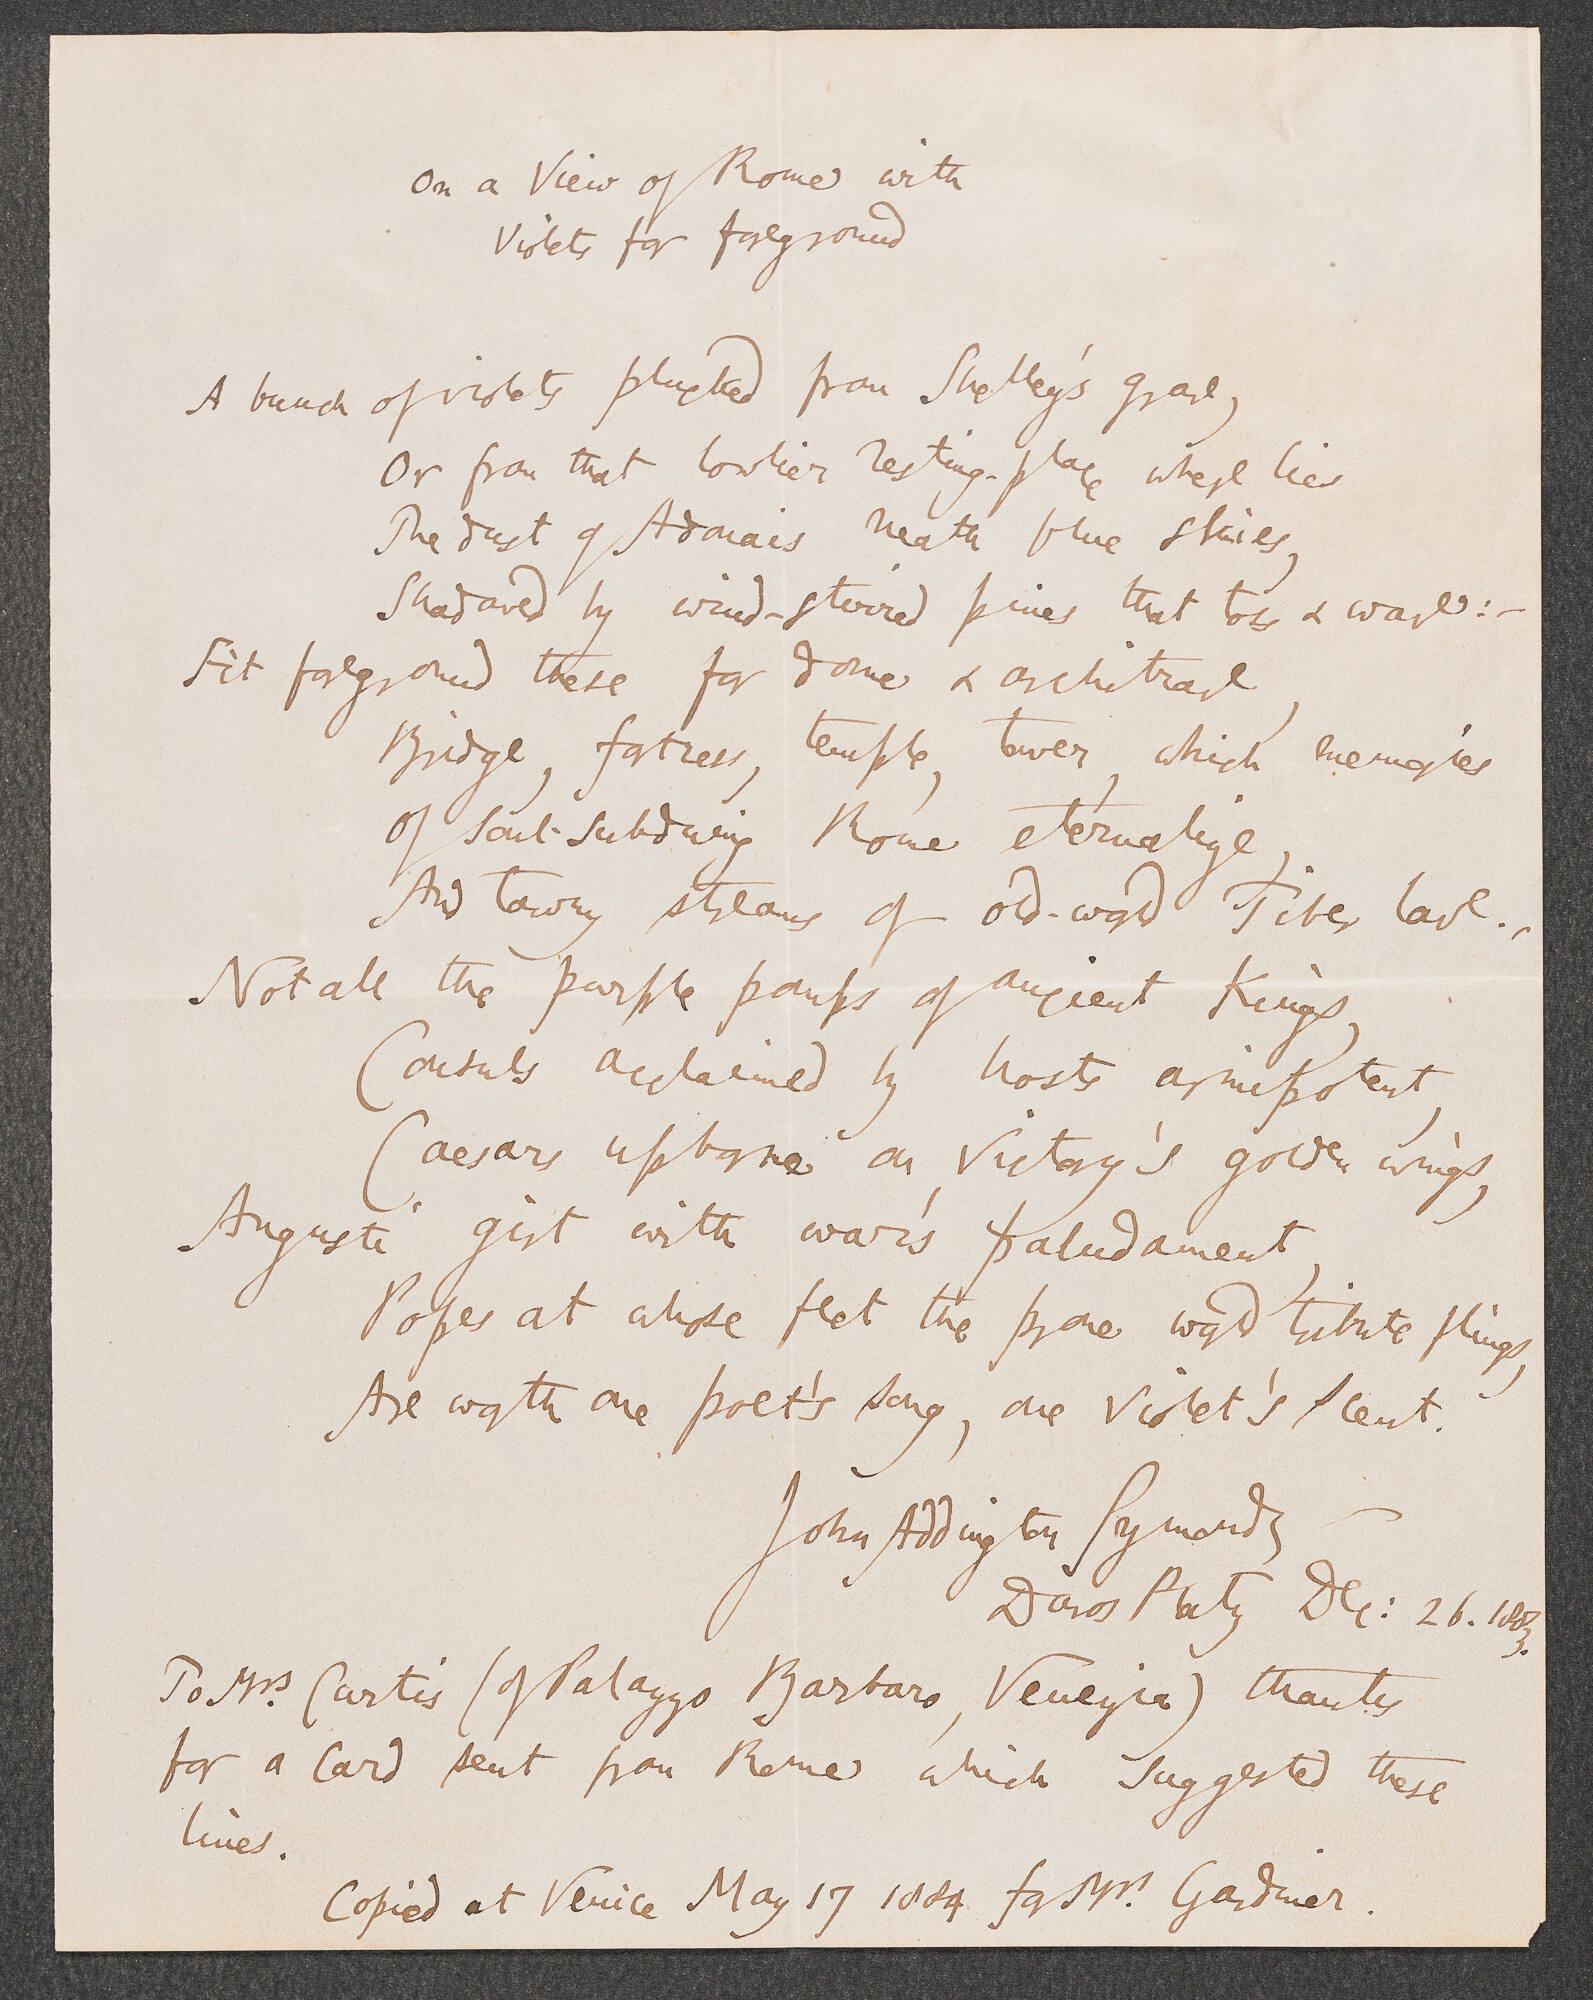 On a View of Rome with
Violets for foreground
A bunch of violets plucked from Shelley's grave,
Or from that lowlier resting-place where lies
The dust of Adonais neath blue skies,
Shadowed by wind-stirred pines that toss & wave:-
Fit foreground these for dome & architrave,
Bridge, fortress, temple, tower, which memories
Of soul-subduing Rome eternalize,
And tawny streams of old-world Tiber lave.,
Not all the purple pomps of ancient Kings,
Consuls acclaimed by hosts armipotent,
Caesars upborne on Victory's golden wings,
Augusti girt with war's paludament,
Popes at whose feet the prone world tribute flings,
Are worth one poet's song, one violet's scent.
John Addington Symonds
Davos Platz Dec: 26. 1883.
To Mrs. Curtis (of Palazzo Barbaro, Venezia) thanks
for a Card sent from Rome which suggested these
lines.
Copied at Venice May 17 1884 for Mrs. Gardiner.